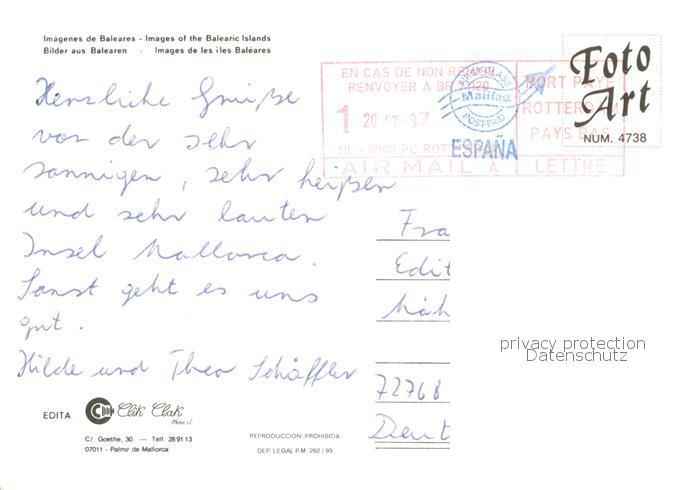 Imágenes de Baleares - Images of the Balearic Islands
Bilder aus Balearen - Images de les îles Baléares
Foto
Art
NUM. 4738
EN CAS DE NON REMISE
RENVOYER A BR 2020
PORT PAYÉ
ROTTERDAM
PAYS BAS
1 20-07-97
NL - 3000 PC ROT
AIR MAIL A LETTRE
Mailfast
POST-PAID
ESPAÑA
Herzliche Grüße
von der sehr
sonnigen, sehr heißen
und sehr lauten
Insel Mallorca.
Sonst geht es uns
gut.
Hilde und Theo Schäffler
Fra
Edit
Näh
72768
Deut
privacy protection
Datenschutz
EDITA
Clik Clak
C/. Goethe, 30 — Telf. 28 91 13
07011 - Palma de Mallorca
REPRODUCCION PROHIBIDA
DEP. LEGAL P.M. 262 / 95